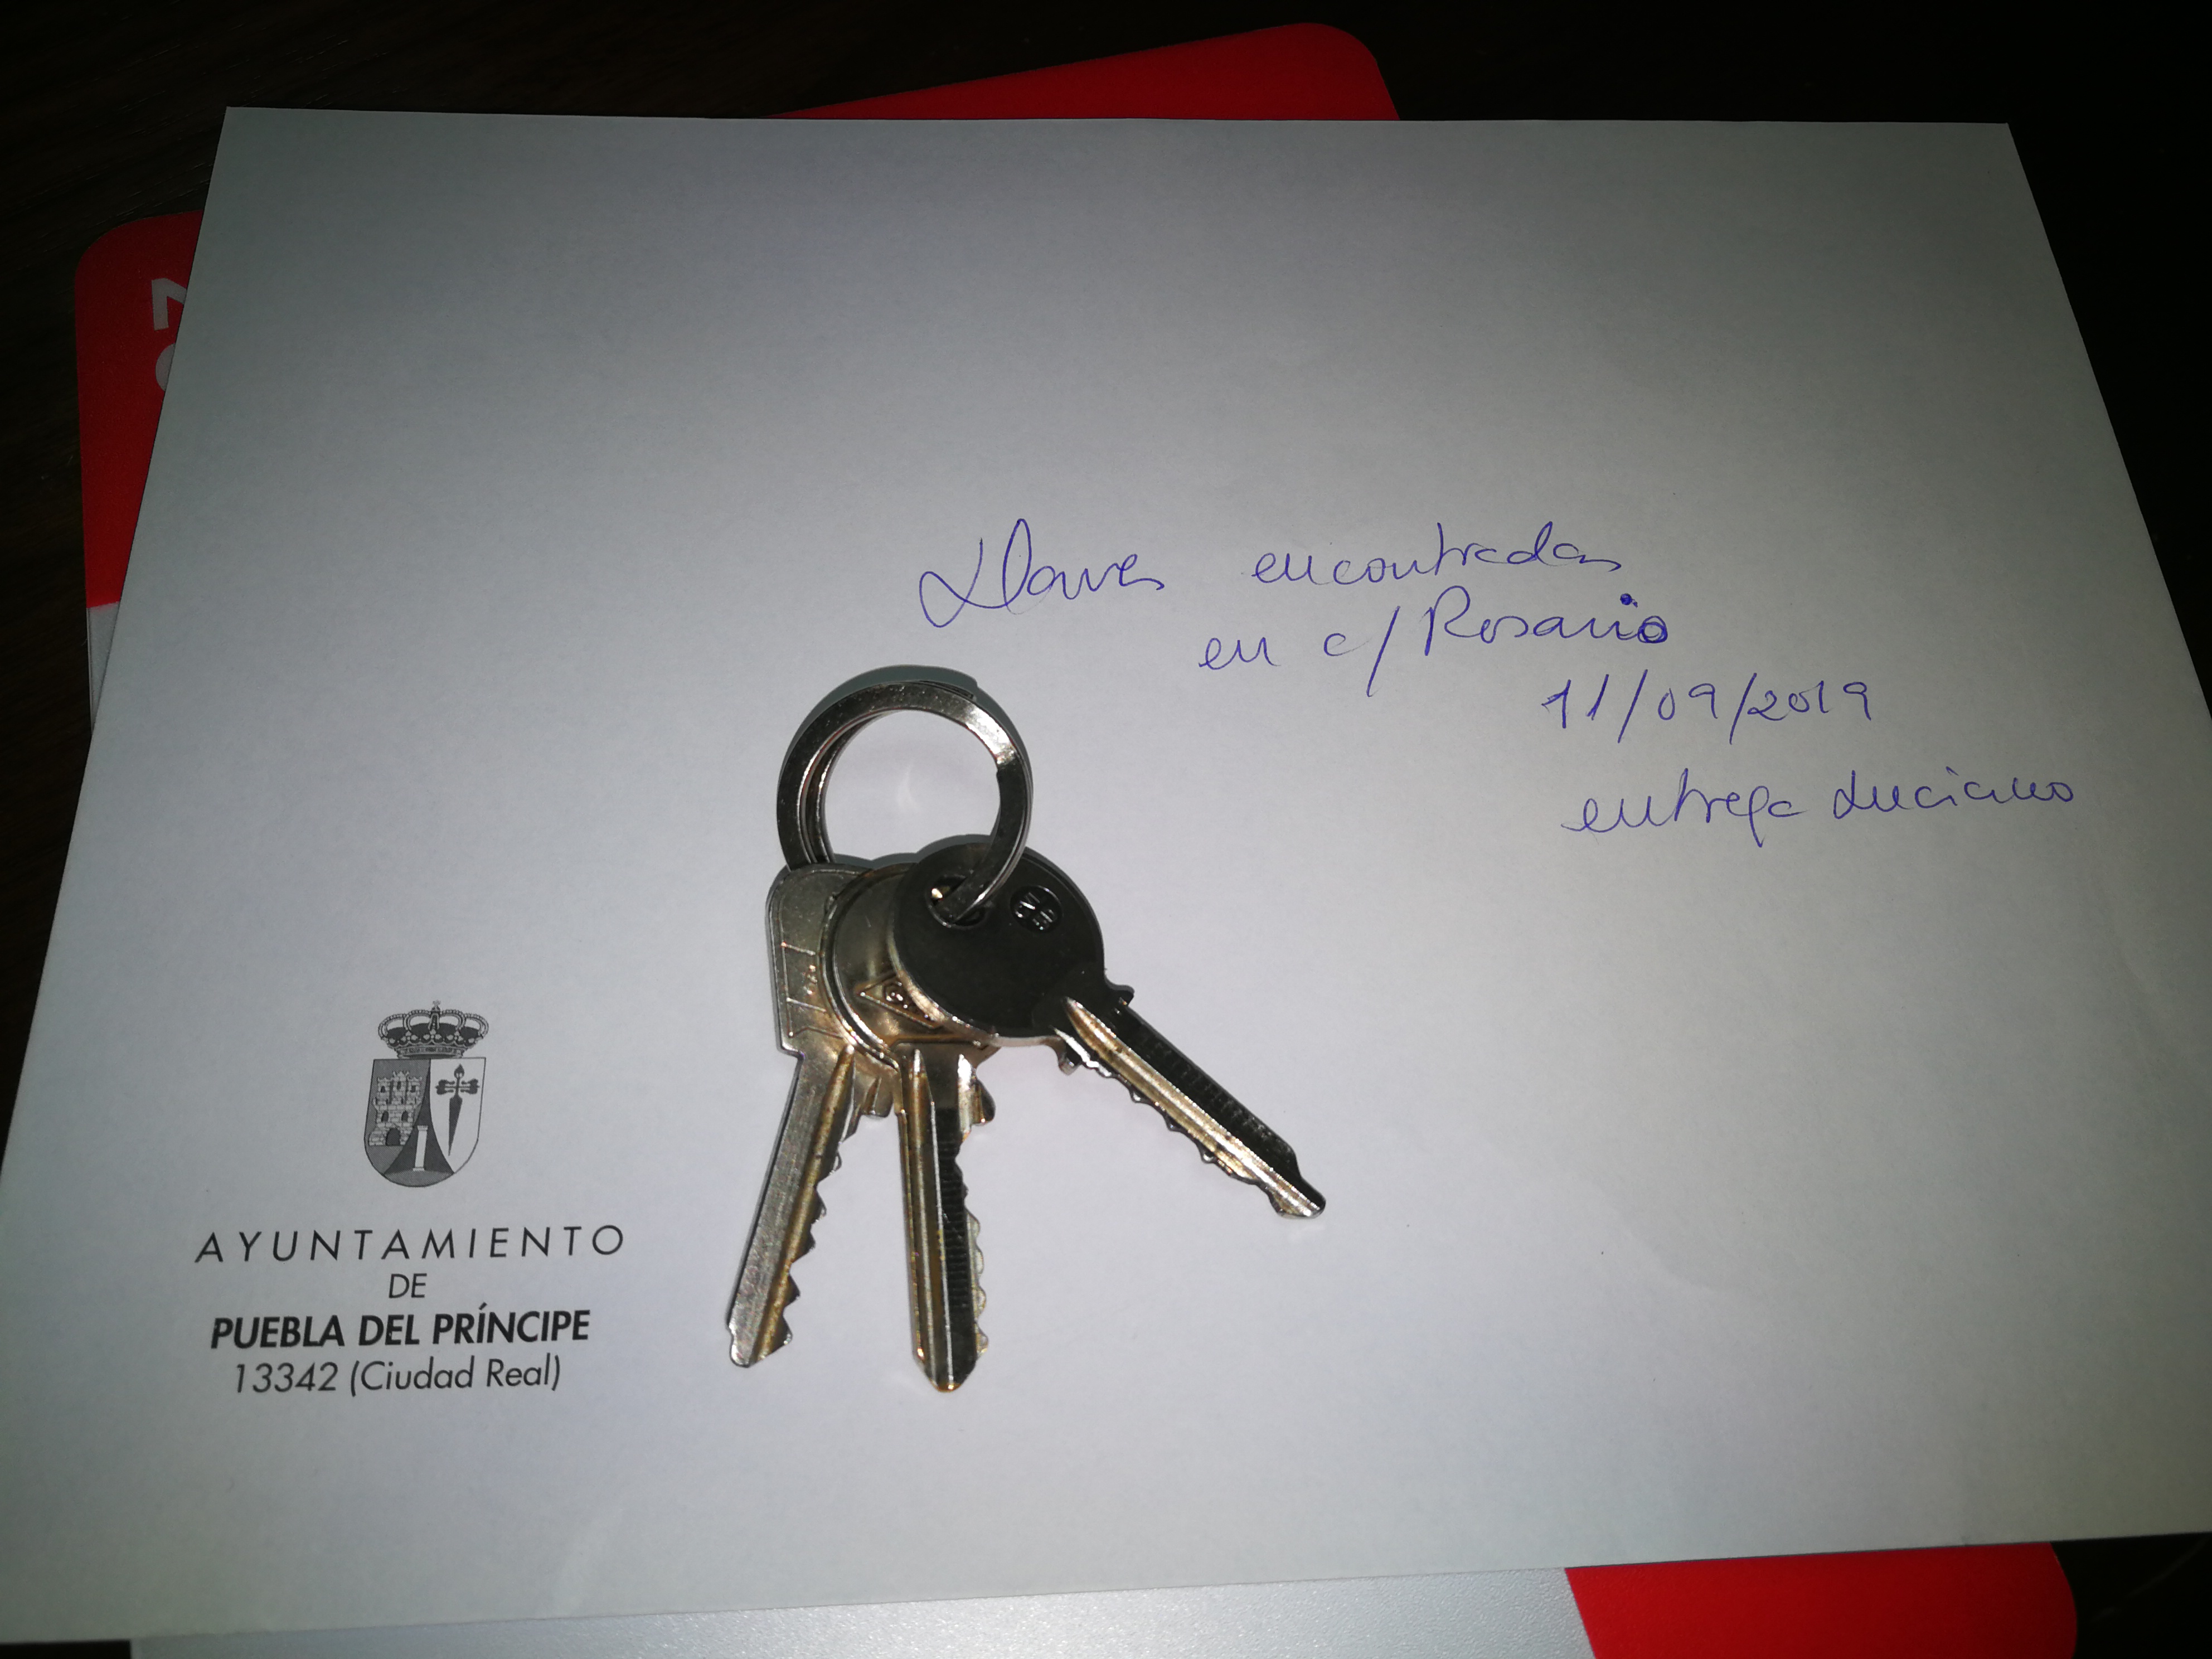 Llaves encontradas
en c/ Rosario
11/09/2019
entrega Luciano
AYUNTAMIENTO
DE
PUEBLA DEL PRÍNCIPE
13342 (Ciudad Real)